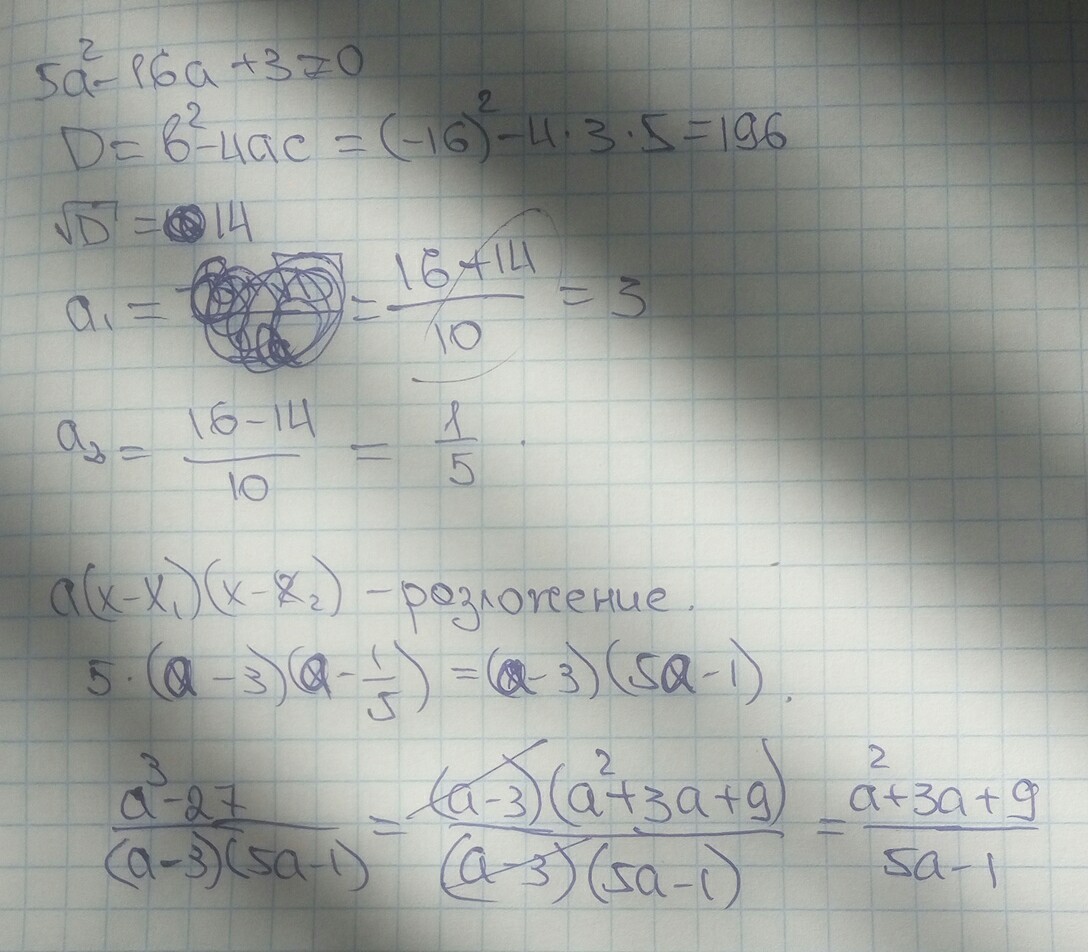 5a² - 16a + 3 = 0
D = b² - 4ac = (-16)² - 4·3·5 = 196
√D = 14
a₁ = = (16+14)/10 = 3
a₂ = (16-14)/10 = 1/5.
a(x-x₁)(x-x₂) - розложение.
5·(a-3)(a-1/5) = (a-3)(5a-1).
(a³-27)/((a-3)(5a-1)) = ((a-3)(a²+3a+9))/((a-3)(5a-1)) = (a²+3a+9)/(5a-1)